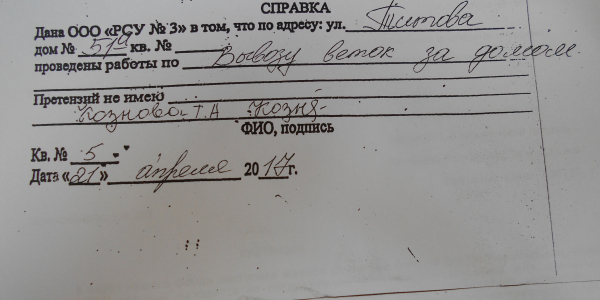 СПРАВКА
Дана ООО «РСУ № 3» в том, что по адресу: ул. Титова
дом № 5/9 кв. №
проведены работы по Вывозу веток за домом
Претензий не имею
Кознова Т.А
ФИО, подпись
Кв. № 5
Дата «21» апреля 2017г.